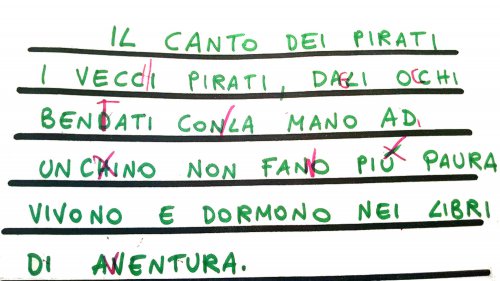 IL CANTO DEI PIRATI
I VECCHI PIRATI, DALI OCCHI
BENDATI CON/LA MANO AD
UNCHINO NON FANO PIÙ PAURA
VIVONO E DORMONO NEI LIBRI
DI AVENTURA.